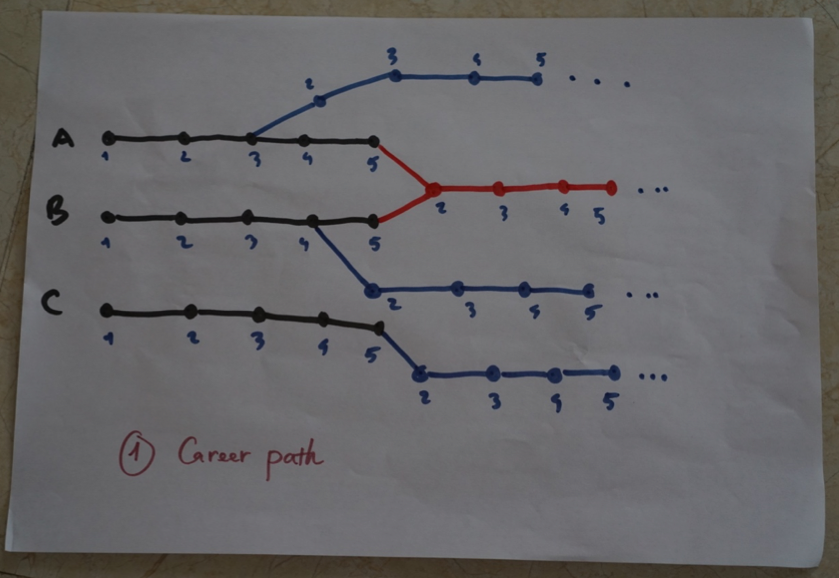 2 3 4 5 . . . .
A
1 2 3 4 5
2 3 4 5 ...
B
1 2 3 4 5
2 3 4 5 ...
C
1 2 3 4 5
2 3 4 5 ...
① Career path